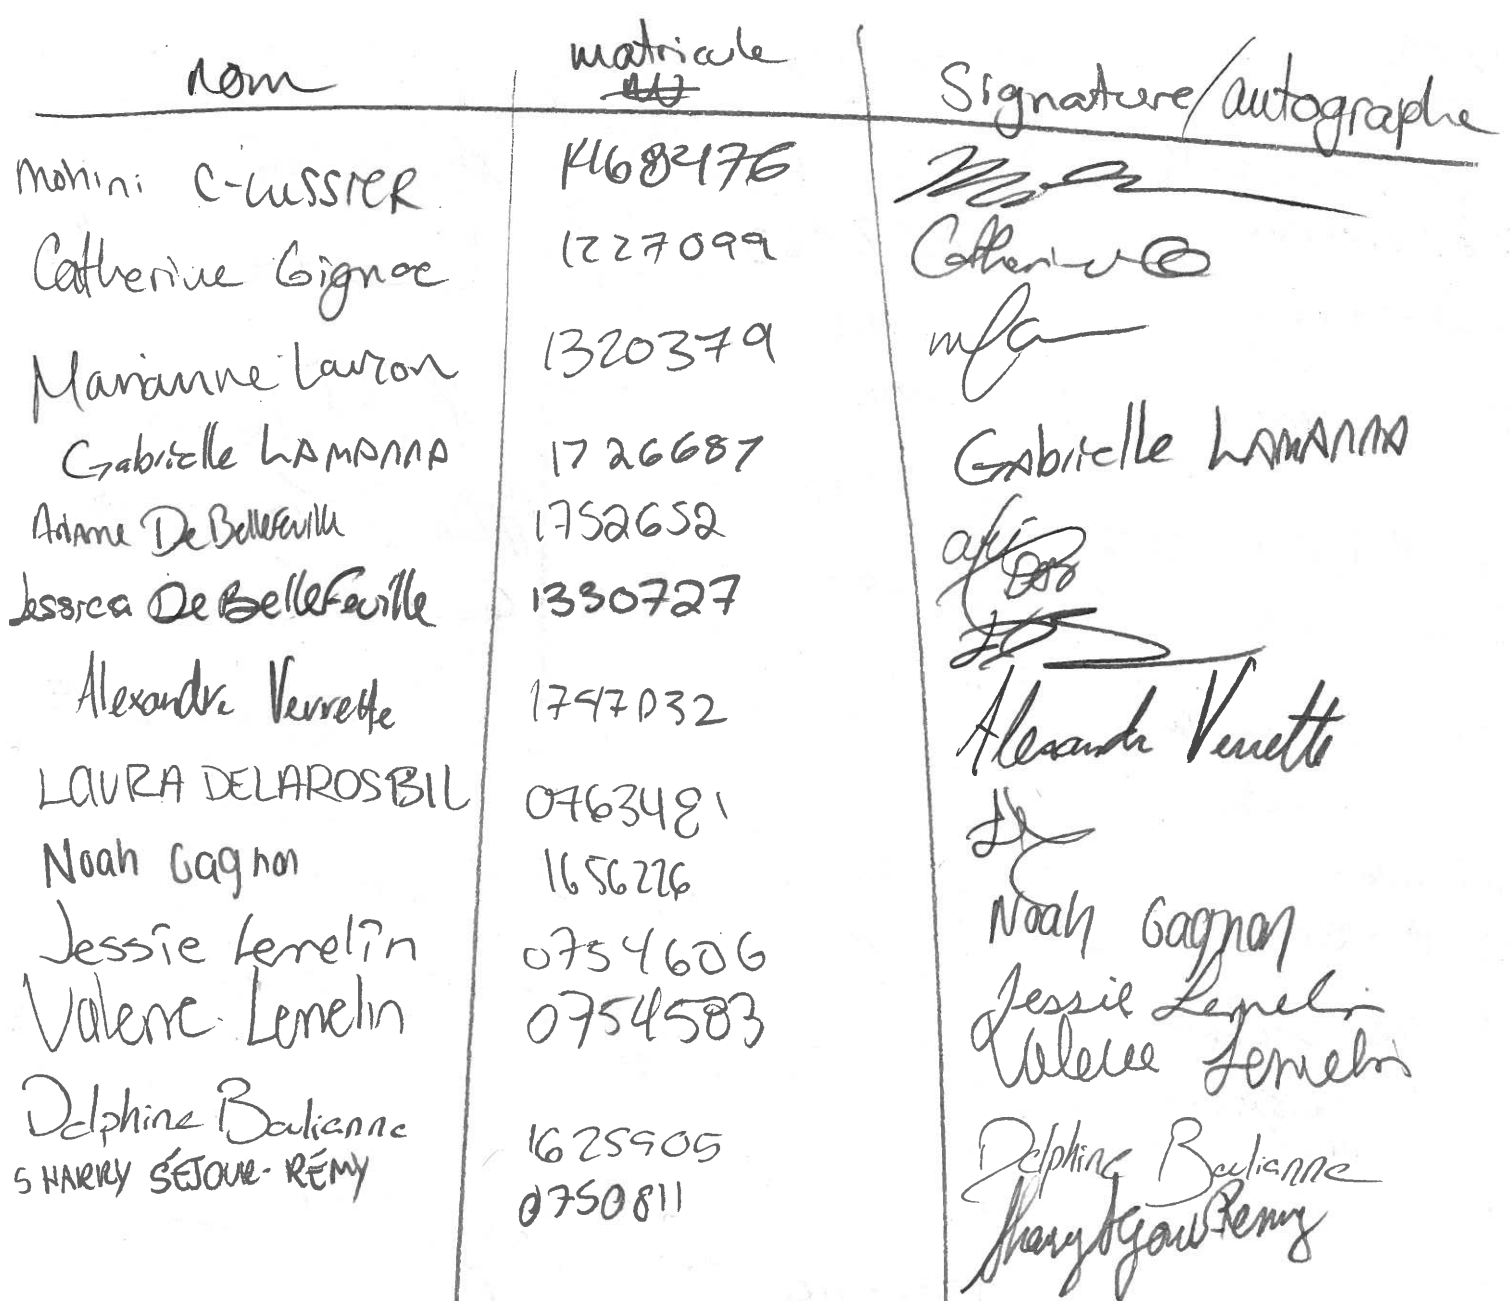 nom matricule Signature/autographe
Mohini C-LUSSIER 1468476
Catherine Gignac 1227099 Catherine
Marianne Lauzon 1320379
Gabrielle LAMANNA 1726687 Gabrielle LAMANNA
Ariane De Bellefeuille 1752652
Jessica De BelleFeuille 1330727
Alexandre Verrette 1747032 Alexandre Verrette
LAURA DELAROSBIL 0763481
Noah Gagnon 1656226 Noah Gagnon
Jessie Lemelin 0754606 Jessie Lemelin
Valerie Lemelin 0754583 Valerie Lemelin
Delphine Boulianne 1625905 Delphine Boulianne
SHARRY SÉJOUR-RÉMY 0750811 Sharry Séjour Remy